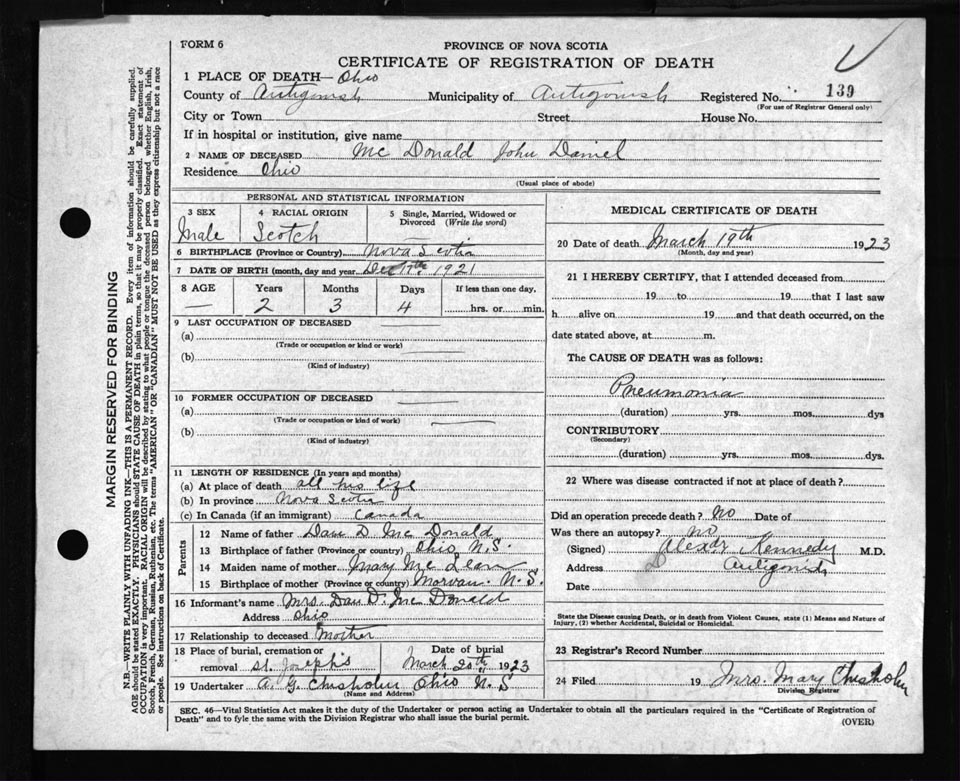 FORM 6
PROVINCE OF NOVA SCOTIA
CERTIFICATE OF REGISTRATION OF DEATH
1 PLACE OF DEATH— Ohio
County of Antigonish Municipality of Antigonish Registered No. 139
(For use of Registrar General only)
City or Town Street House No.
If in hospital or institution, give name
2 NAME OF DECEASED Mc Donald John Daniel
Residence Ohio
(Usual place of abode)
PERSONAL AND STATISTICAL INFORMATION
3 SEX 4 RACIAL ORIGIN 5 Single, Married, Widowed or
Divorced (Write the word)
Male Scotch
6 BIRTHPLACE (Province or Country) Nova Scotia
7 DATE OF BIRTH (month, day and year) 1921
8 AGE Years Months Days If less than one day,
— 2 3 4 hrs. or min.
9 LAST OCCUPATION OF DECEASED
(a)
(Trade or occupation or kind or work)
(b)
(Kind of industry)
10 FORMER OCCUPATION OF DECEASED
(a)
(Trade or occupation or kind of work)
(b)
(Kind of industry)
11 LENGTH OF RESIDENCE (In years and months)
(a) At place of death all his life
(b) In province Nova Scotia
(c) In Canada (if an immigrant) Canada
Parents
12 Name of father Dan D. Mc Donald
13 Birthplace of father (Province or country) Ohio N.S.
14 Maiden name of mother Mary Mc Lean
15 Birthplace of mother (Province or country) Morvan. N.S.
16 Informant's name Mrs. Dan D. Mc Donald
Address Ohio
17 Relationship to deceased Mother
18 Place of burial, cremation or removal St. Joseph's Date of burial March 20th 1923
19 Undertaker A. G. Chisholm Ohio N.S
(Name and Address)
MEDICAL CERTIFICATE OF DEATH
20 Date of death March 19th 1923
(Month, day and year)
21 I HEREBY CERTIFY, that I attended deceased from
19 to 19 that I last saw
h alive on 19 and that death occurred, on the
date stated above, at m.
The CAUSE OF DEATH was as follows:
Pneumonia
(duration) yrs. mos. dys
CONTRIBUTORY
(Secondary)
(duration) yrs. mos. dys.
22 Where was disease contracted if not at place of death?
Did an operation precede death? No Date of
Was there an autopsy? no
(Signed) Alexdr Kennedy M.D.
Address Antigonish
Date
State the Disease causing Death, or in death from Violent Causes, state (1) Means and Nature of
Injury, (2) whether Accidental, Suicidal or Homicidal.
23 Registrar's Record Number
24 Filed 19 Mrs. Mary Chisholm
Division Registrar
SEC. 46—Vital Statistics Act makes it the duty of the Undertaker or person acting as Undertaker to obtain all the particulars required in the "Certificate of Registration of
Death" and to fyle the same with the Division Registrar who shall issue the burial permit.
(OVER)
MARGIN RESERVED FOR BINDING
N.B.—WRITE PLAINLY WITH UNFADING INK—THIS IS A PERMANENT RECORD. Every item of information should be carefully supplied.
AGE should be stated EXACTLY. PHYSICIANS should STATE CAUSE OF DEATH in plain terms, so that it may be properly classified. Exact statement of
OCCUPATION is very important. RACIAL ORIGIN will be described by stating to what people or tongue the deceased person belonged whether English, Irish,
Scotch, French, German, Russian, Ruthenian, etc. The terms "AMERICAN" OR "CANADIAN" MUST NOT BE USED as they express citizenship but not a race
or people. See instructions on back of Certificate.